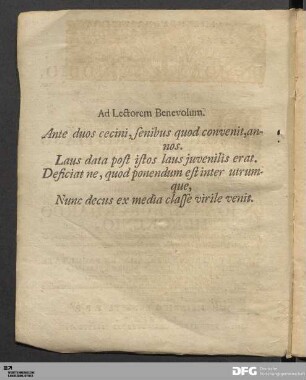 Ad Lectorem Benevolum.
Ante duos cecini, ſenibus quod convenit, an-
nos.
Laus data poſt iſtos laus juvenilis erat.
Deficiat ne, quod ponendum eſt inter utrum-
que,
Nunc decus ex media claſſe virile venit.
DFG